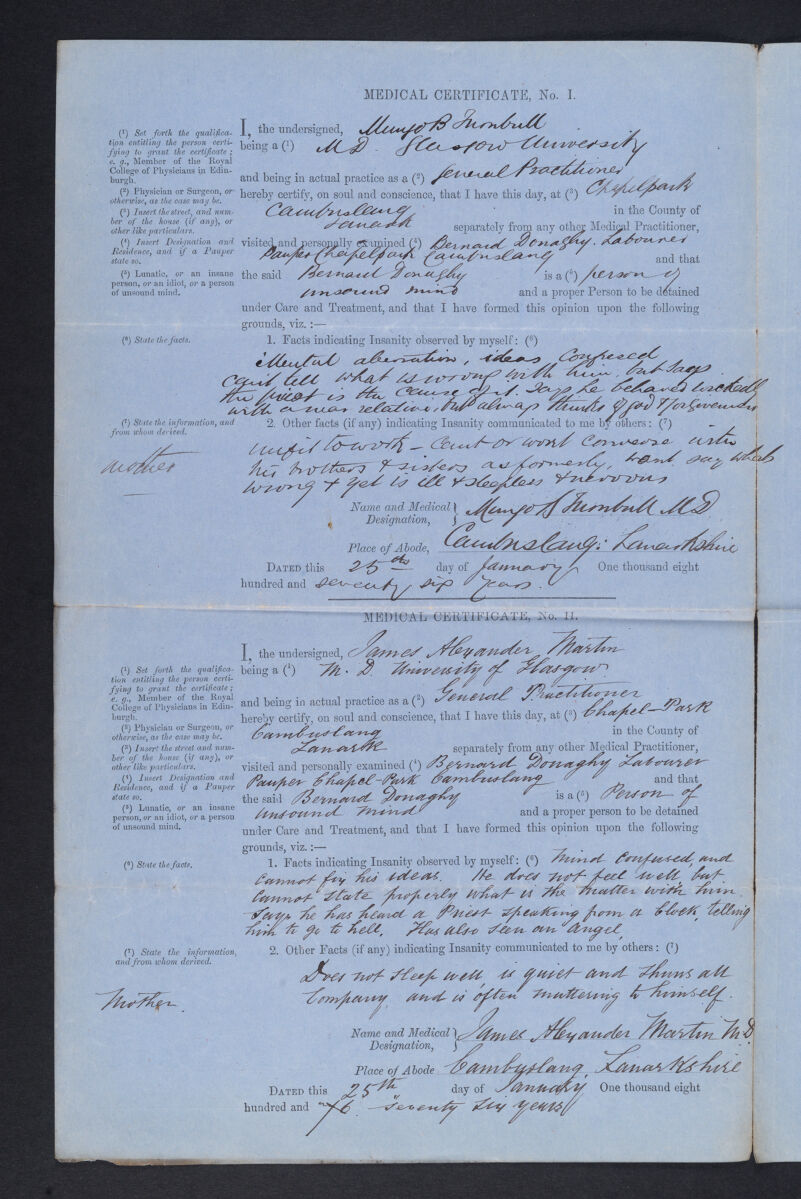 MEDICAL CERTIFICATE, No. I.
(¹) Set forth the qualifica-
tion entitling the person certi-
fying to grant the certificate;
e. g., Member of the Royal
College of Physicians in Edin-
burgh.
(²) Physician or Surgeon, or
otherwise, as the case may be.
(³) Insert the street, and num-
ber of the house (if any), or
other like particulars.
(⁴) Insert Designation and
Residence, and if a Pauper
state so.
(⁵) Lunatic, or an insane
person, or an idiot, or a person
of unsound mind.
I, the undersigned, Mungo B Turnbull
being a (¹) M D. Glasgow University
and being in actual practice as a (²) General Practitioner
hereby certify, on soul and conscience, that I have this day, at (³) Chapelpark
Cambuslang in the County of
Lanark separately from any other Medical Practitioner,
visited and personally examined (⁴) Bernard Donaghy. Labourer
Pauper Chapelpark Cambuslang and that
the said Bernard Donaghy is a (⁵) person of
unsound mind and a proper Person to be detained
under Care and Treatment, and that I have formed this opinion upon the following
grounds, viz.:—
(⁶) State the facts.
1. Facts indicating Insanity observed by myself: (⁶)
Mental aberration, ideas confused
can't tell what is wrong with him but says
the priest is the cause of it. Says he behaved wickedly
with a near relative. but always thinks of god & forgiveness
(⁷) State the information, and
from whom derived.
2. Other facts (if any) indicating Insanity communicated to me by others: (⁷)
mother
unfit to work – cant or wont converse with
his brothers & sisters as formerly, wont say whats
wrong & yet is ill & sleepless & nervous
Name and Medical Designation, Mungo B Turnbull M D
Place of Abode, Cambuslang: Lanarkshire
DATED this 25th day of January One thousand eight
hundred and seventy six years.
MEDICAL CERTIFICATE, No. II.
(¹) Set forth the qualifica-
tion entitling the person certi-
fying to grant the certificate;
e. g., Member of the Royal
College of Physicians in Edin-
burgh.
(²) Physician or Surgeon, or
otherwise, as the case may be.
(³) Insert the street and num-
ber of the house (if any), or
other like particulars.
(⁴) Insert Designation and
Residence, and if a Pauper
state so.
(⁵) Lunatic, or an insane
person, or an idiot, or a person
of unsound mind.
I, the undersigned, James Alexander Martin
being a (¹) M. D. University of Glasgow
and being in actual practice as a (²) General Practitioner
hereby certify, on soul and conscience, that I have this day, at (³) Chapel-Park
Cambuslang in the County of
Lanark separately from any other Medical Practitioner,
visited and personally examined (⁴) Bernard Donaghy Labourer
Pauper Chapel-Park Cambuslang and that
the said Bernard Donaghy is a (⁵) Person of
Unsound mind and a proper person to be detained
under Care and Treatment, and that I have formed this opinion upon the following
grounds, viz.:—
(⁶) State the facts.
1. Facts indicating Insanity observed by myself: (⁶) Mind confused, and
cannot fix his ideas. He does not feel well but
cannot state properly what is the matter with him.
Says he has heard a Priest speaking from a clock, telling
him to go to hell. Has also seen an angel.
(⁷) State the information,
and from whom derived.
2. Other Facts (if any) indicating Insanity communicated to me by others: (⁷)
Mother.
Does not sleep well, is quiet and shuns all
Company, and is often muttering to himself.
Name and Medical Designation, James Alexander Martin M.D.
Place of Abode Cambuslang, Lanarkshire
DATED this 25th day of January One thousand eight
hundred and 76 seventy six years